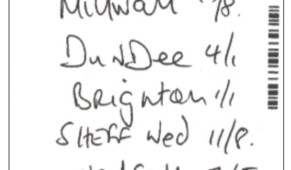 Millwall /8.
DunDee 4/1
Brighton 1/1
SHEFF Wed 11/8.